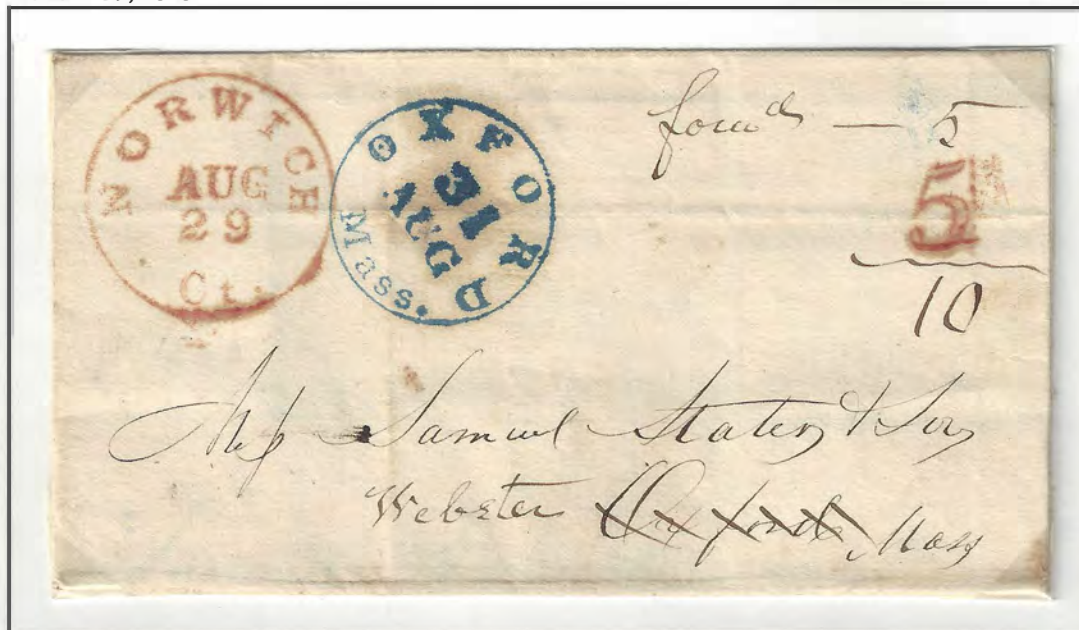 NORWICH
AUG
29
Ct.
OXFORD
31
AUG
Mass.
forwd — 5
5
10
Mess Samuel Slater & Son
Webster Oxford, Mass